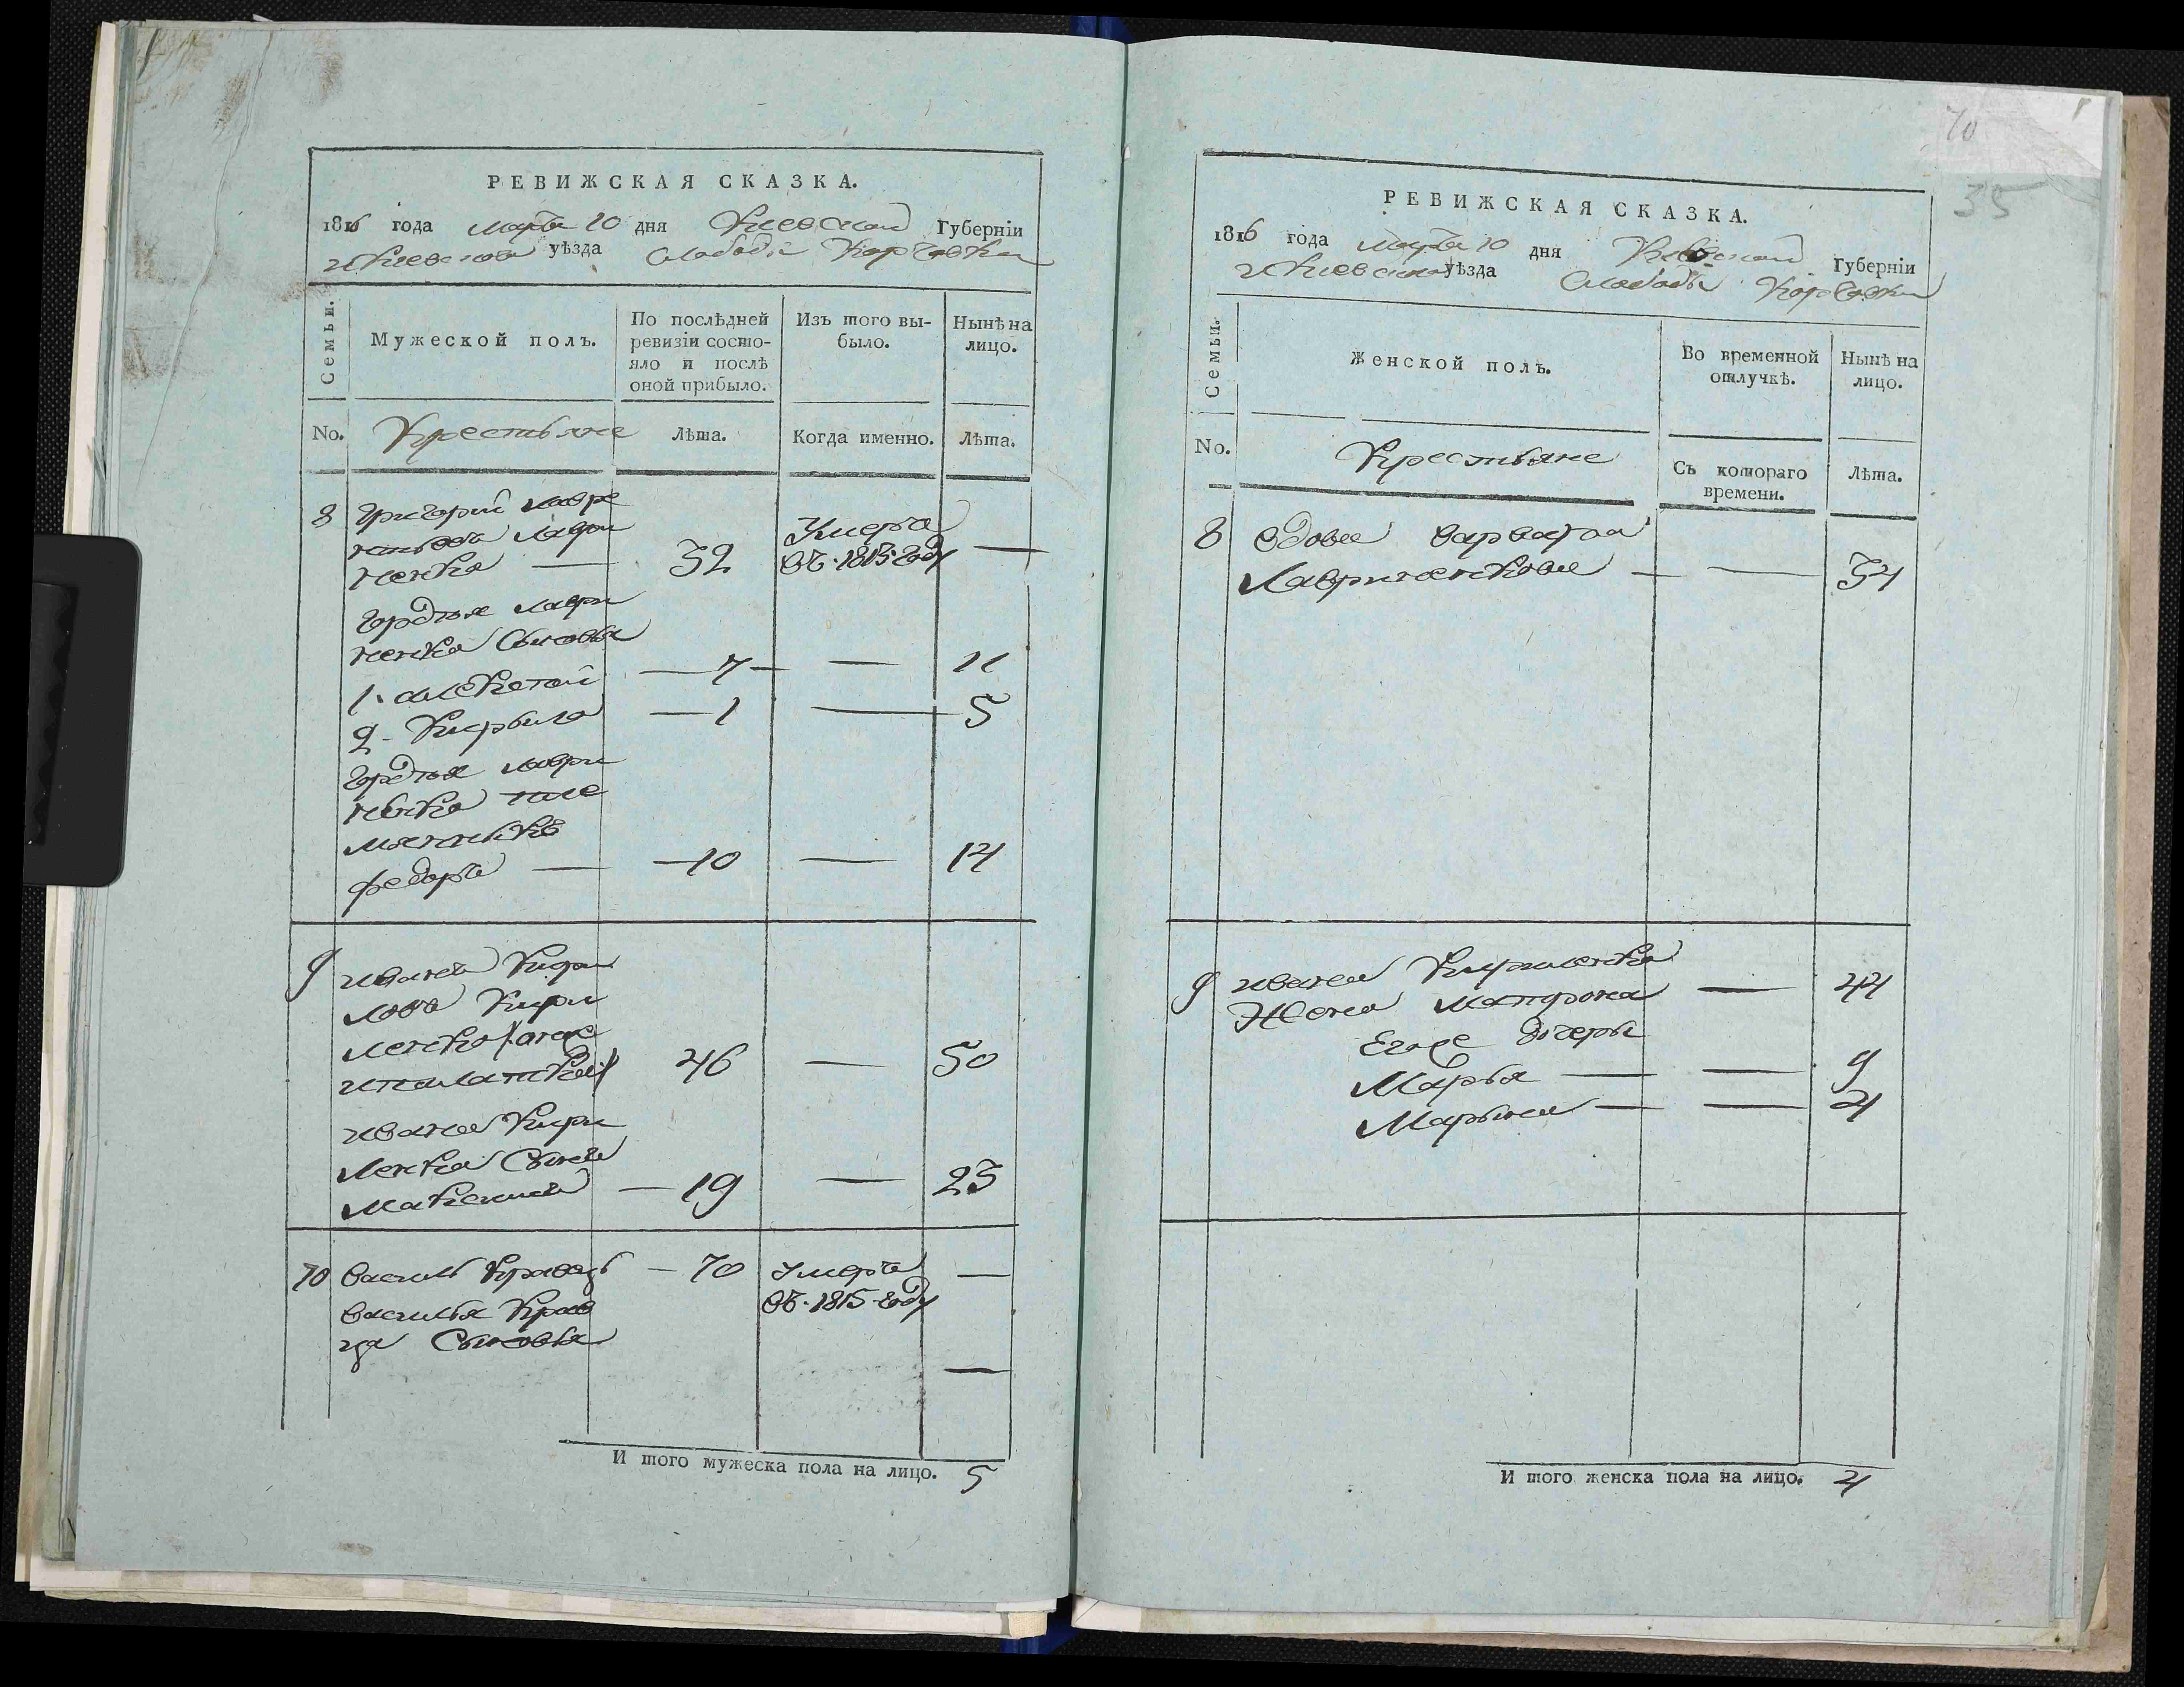 РЕВИЖСКАЯ СКАЗКА.
1816 года Марта 10 дня Киевской Губернiи
и Киевского уѣзда Слободы Корчовки
Семьи.
Мужеской полъ.
По послѣдней ревизiи состо-
яло и послѣ
оной прибыло.
Изъ того вы-
было.
Нынѣ на
лицо.
No. Крестьяне Лѣта. Когда именно. Лѣта.
8 Григорiй Лавре
ньтьевъ Лаври
ненко — 32 Умеръ въ 1815 году —
Гордѣя Лаври
ненка Сыновья
1. Алексѣй — 7 — — 11
2. Кирыло — 1 — 5
Гордѣя Лаври
ненка пле
мянникъ
Федоръ — — 10 — 14
9 Иванъ Кири
ловъ Кири
ленко / онже
Ипалатный / 46 — 50
Ивана Кири
ленка Сынъ
Максимъ — 19 — 23
10 Василь Кравецъ — 70 Умеръ —
въ 1815 году
Василья Крав
ца Сыновья
—
И того мужеска пола на лицо. 5
70
35
РЕВИЖСКАЯ СКАЗКА.
1816 года Марта 10 дня Киевской Губернiи
и Киевского уѣзда Слободы Корчовки
Семьи.
Женской полъ.
Во временной
отлучкѣ.
Нынѣ на
лицо.
No. Крестьяне Съ котораго
времени. Лѣта.
8 вдова Варвара
Лавриненкова — — 34
9 Ивана Кириленка
Жена Матрона — 44
Егоже дочеры
Марья — — 9
Марына — — 4
И того женска пола на лицо. 4